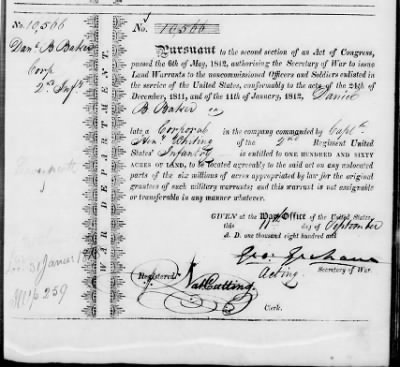 No. 10,566
Danl. B Baker
Corp
2nd Infy
WAR DEPARTMENT.
31 Januar
259
No. 10566
Pursuant to the second section of an Act of Congress,
passed the 6th of May, 1812, authorising the Secretary of War to issue
Land Warrants to the noncommissioned Officers and Soldiers enlisted
in the service of the United States, conformably to the acts of the 24th
of December, 1811, and of the 11th of January, 1812, Daniel
B. Baker
late a Corporal in the company commanded by Captn.
Henry Whiting of the 2nd Regiment United
States' Infantry is entitled to ONE HUNDRED AND SIXTY
ACRES OF LAND, to be located agreeably to the said act on any unlocated
parts of the six millions of acres appropriated by law for the original
grantees of such military warrants; and this warrant is not assignable
or transferable in any manner whatever.
GIVEN at the War Office of the United States,
this day of September
A. D. one thousand eight hundred and
Geo: Graham
Acting Secretary of War.
Registered
Nat Cutting.
Clerk.